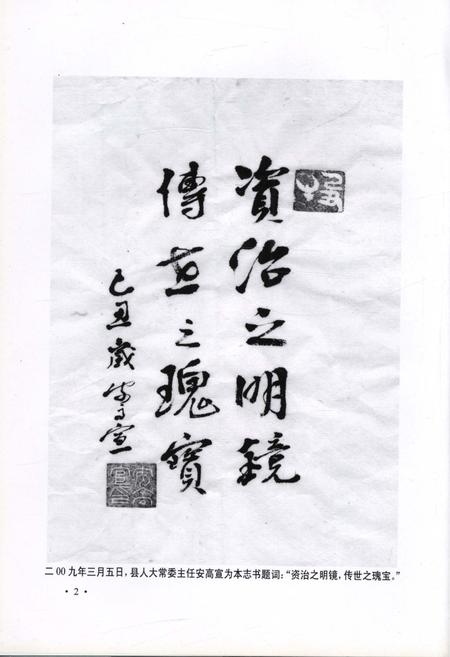 資治之明镜
傳世之瑰寶
己丑歲安高宣
二00九年三月五日，县人大常委主任安高宣为本志书题词：“资治之明镜，传世之瑰宝。”
·2·